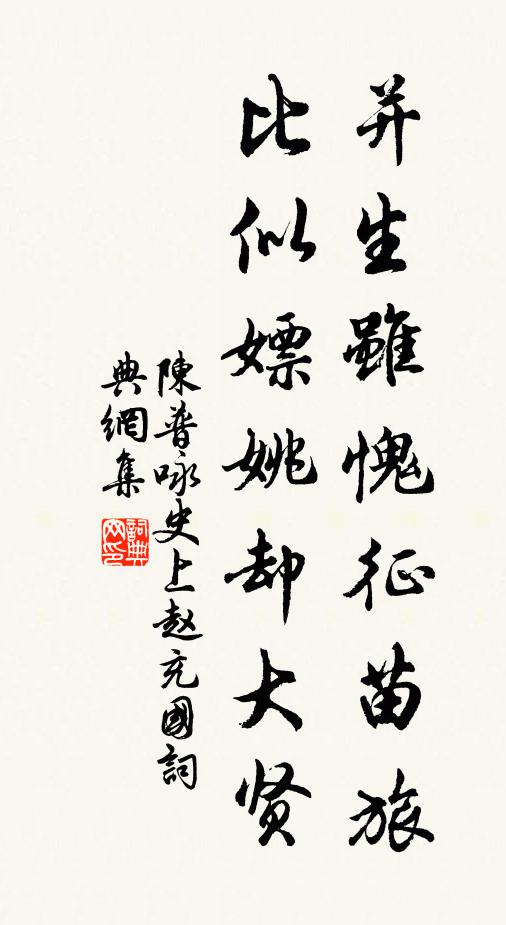 并生雖愧征苗旅
比似嫖姚却大贤
陳普咏史上赵充國詞
典網集
詞典网印